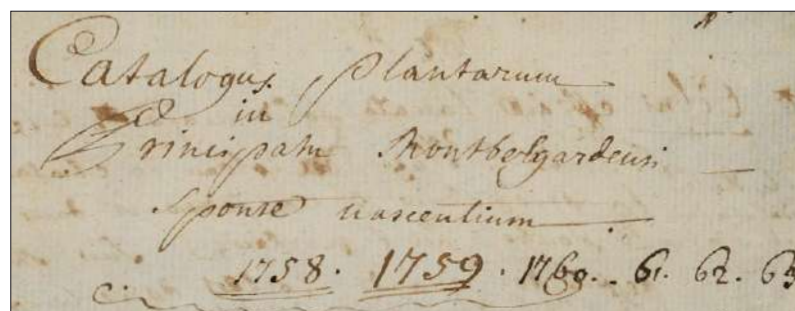 Catalogus plantarum
in
Principatu Montbelgardensi
sponte nascentium
1758. 1759. 1760. 61. 62. 63